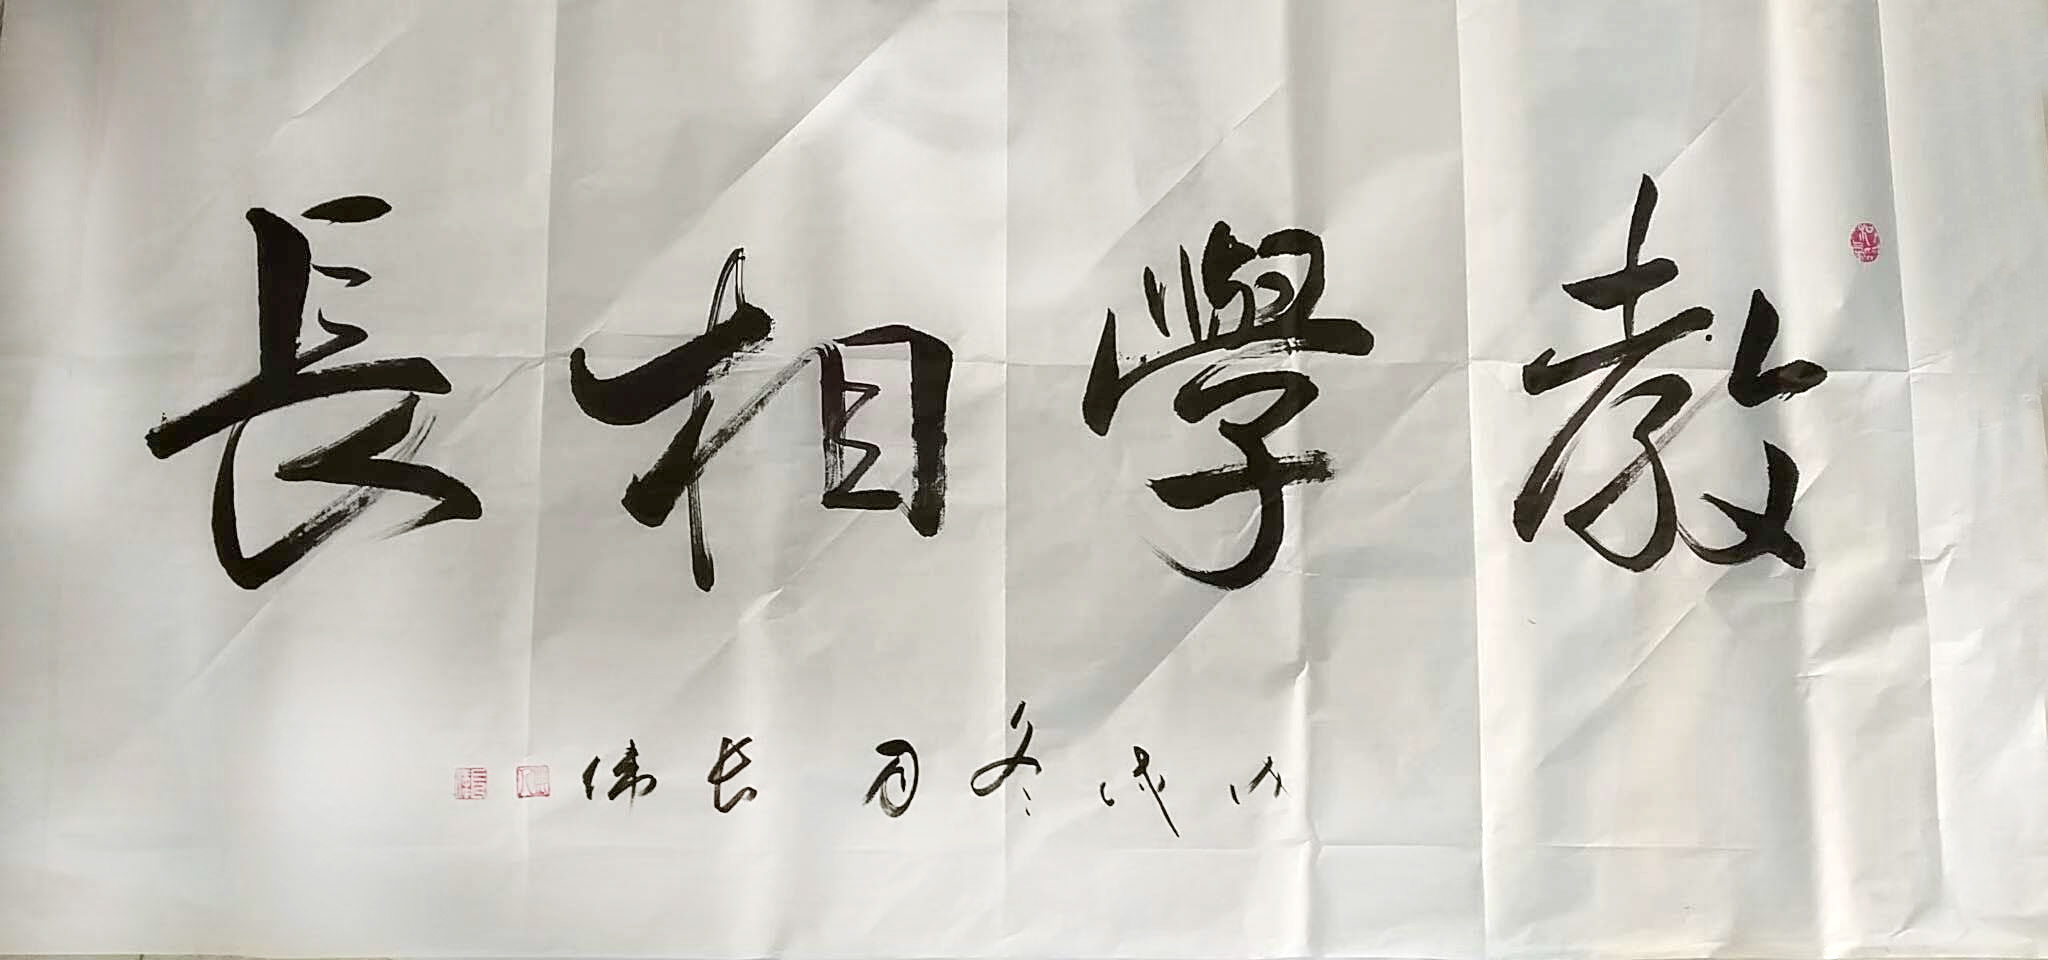 教學相長
戊戌冬月長偉